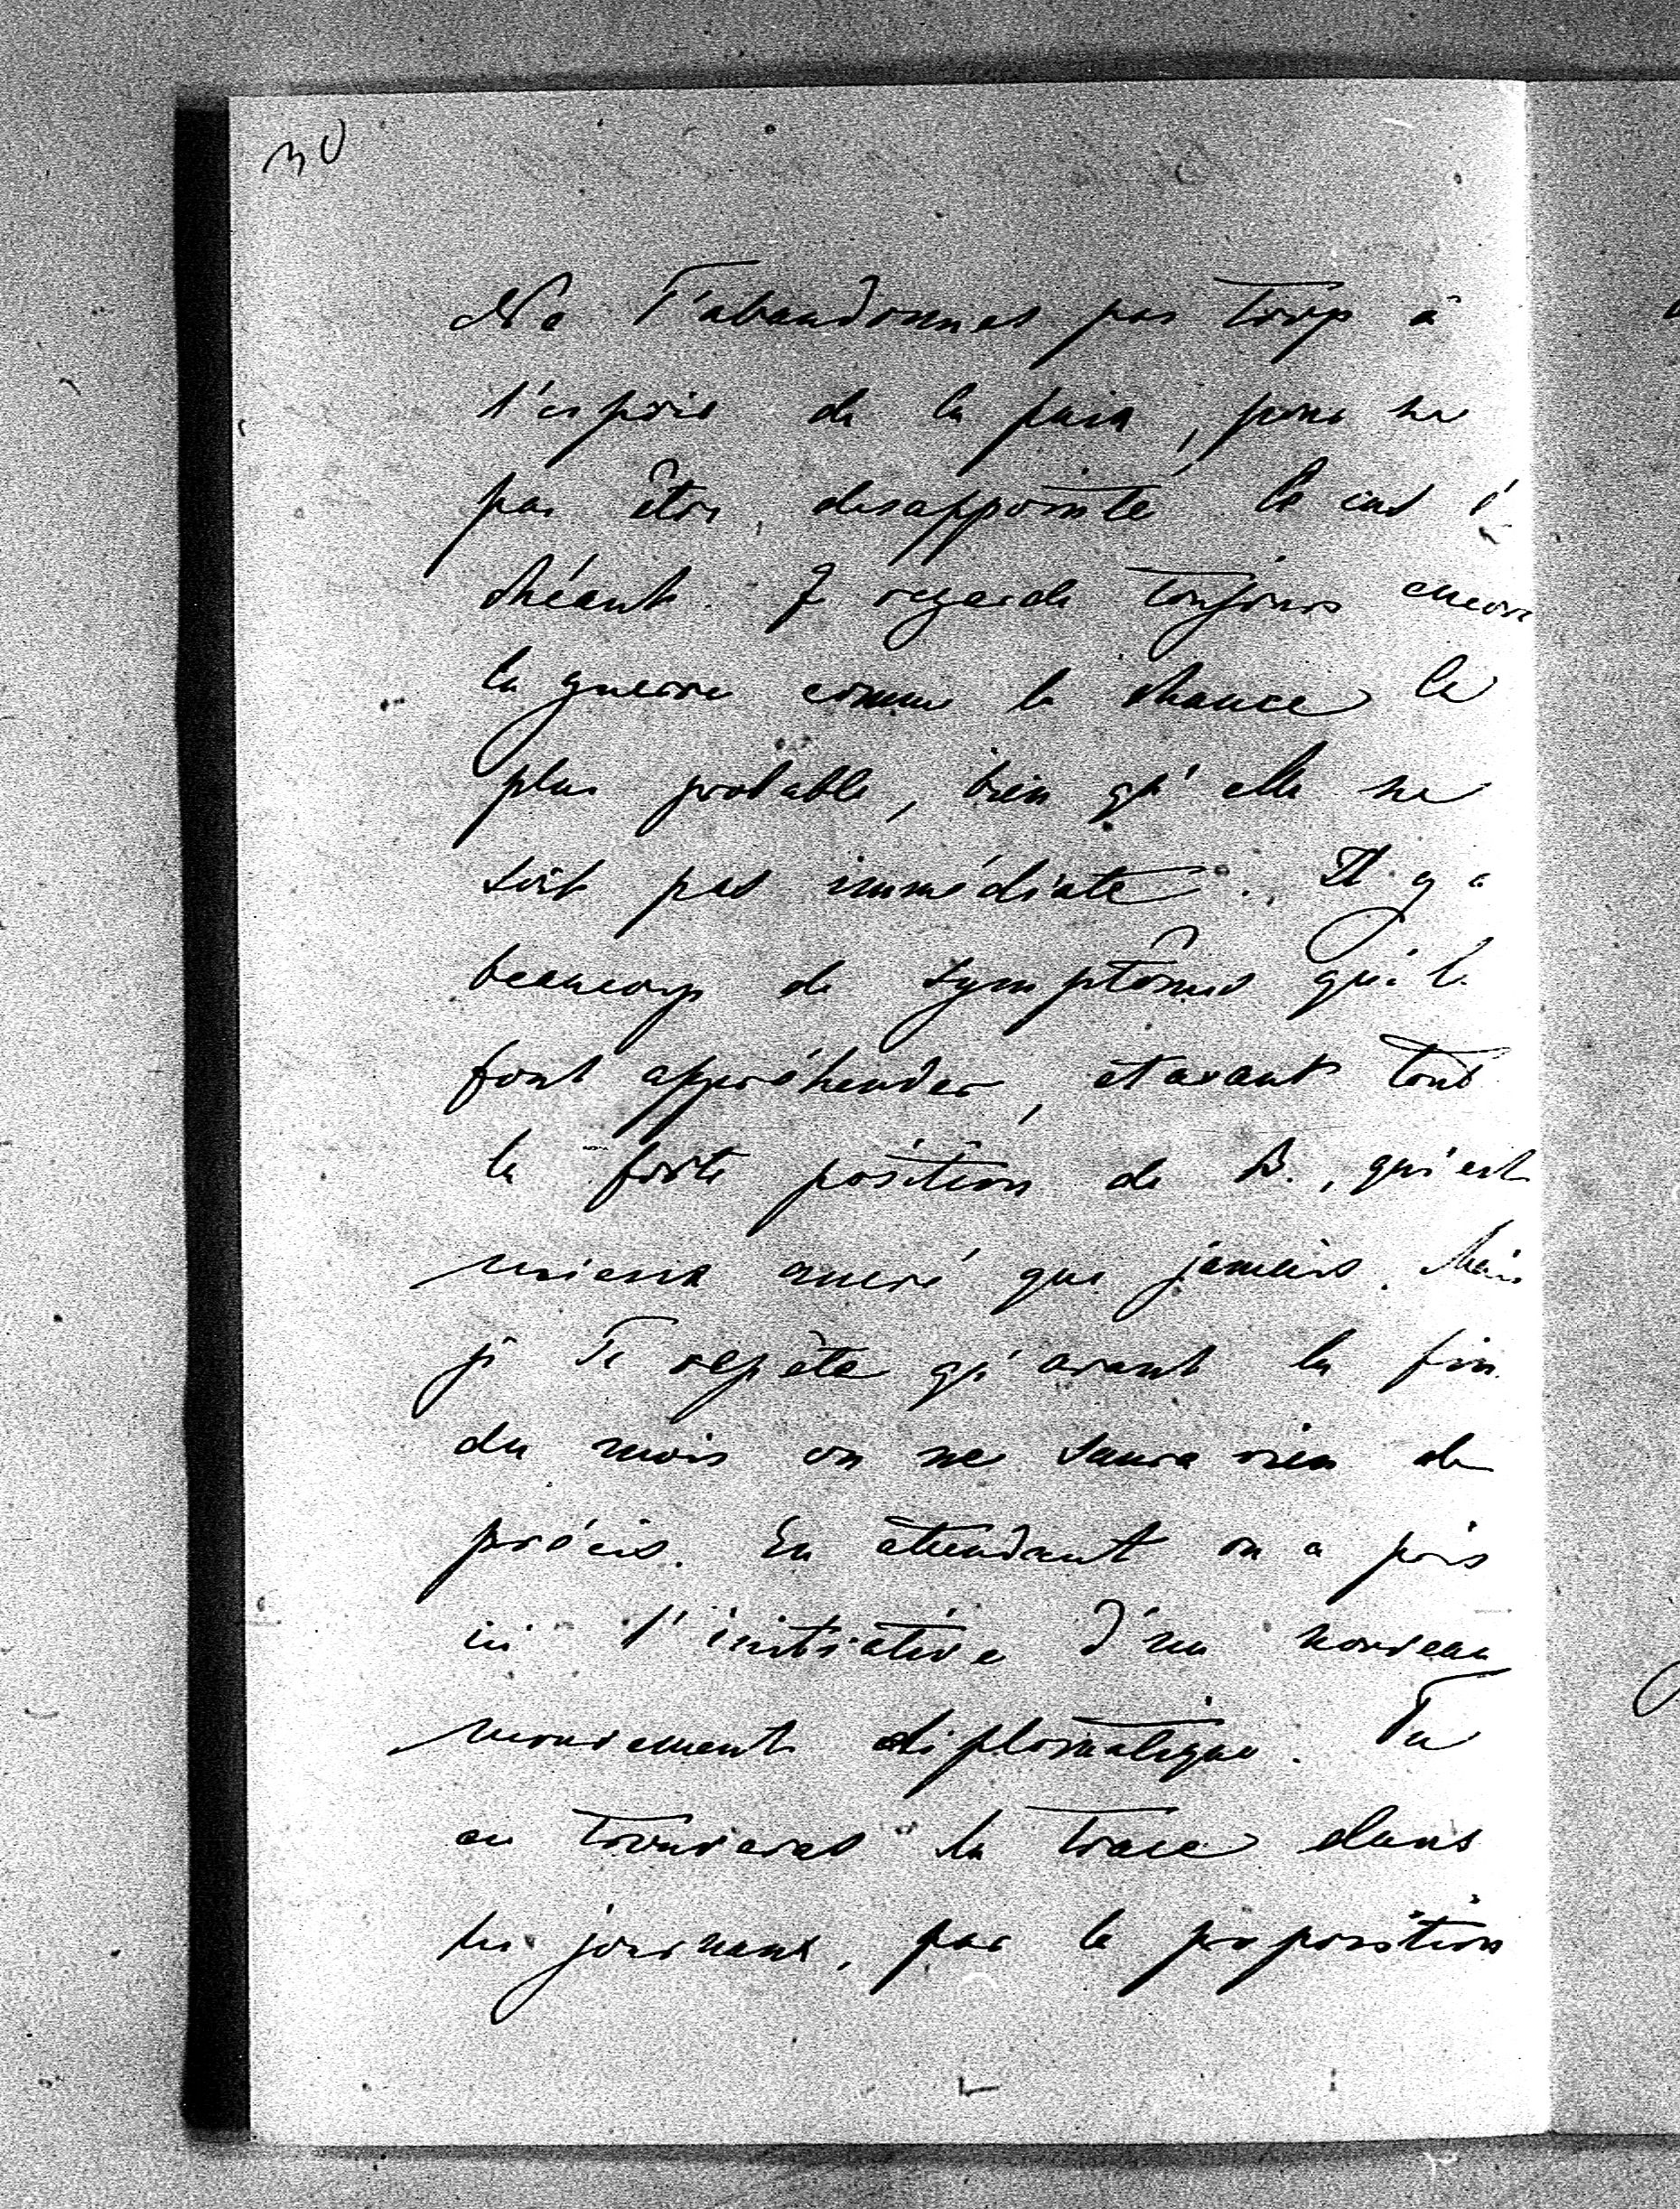 30
Ne T'abandonnes pas trop à
l'espoir de la paix, pour ne
pas être désappointé le cas é-
chéant. Je regarde toujours encore
la guerre comme la chance la
plus probable, bien qu'elle ne
soit pas immédiate. Il y a
beaucoup de symptômes qui la
font appréhender, et avant tout
la forte position de B., qui est
mieux ancré que jamais. Mais
je Te repète qu'avant la fin
du mois on ne saura rien de
précis. En attendant on a pris
ici l'initiative d'un nouveau
mouvement diplomatique. Tu
en trouveras la trace dans
les journaux, par la proposition